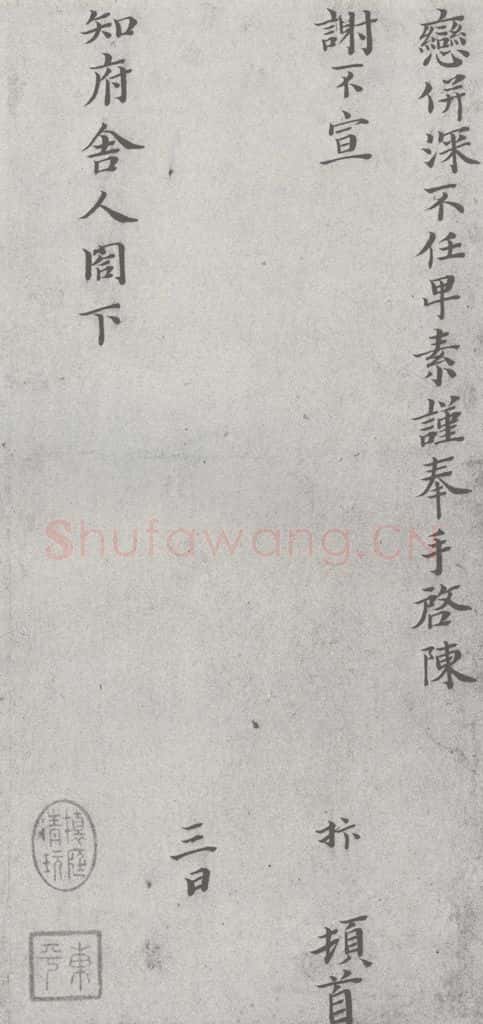 戀併深不任卑素謹奉手啓陳
謝不宣
抃 頓首
三日
知府舍人閤下
清玩
東平
Shufawang.CN